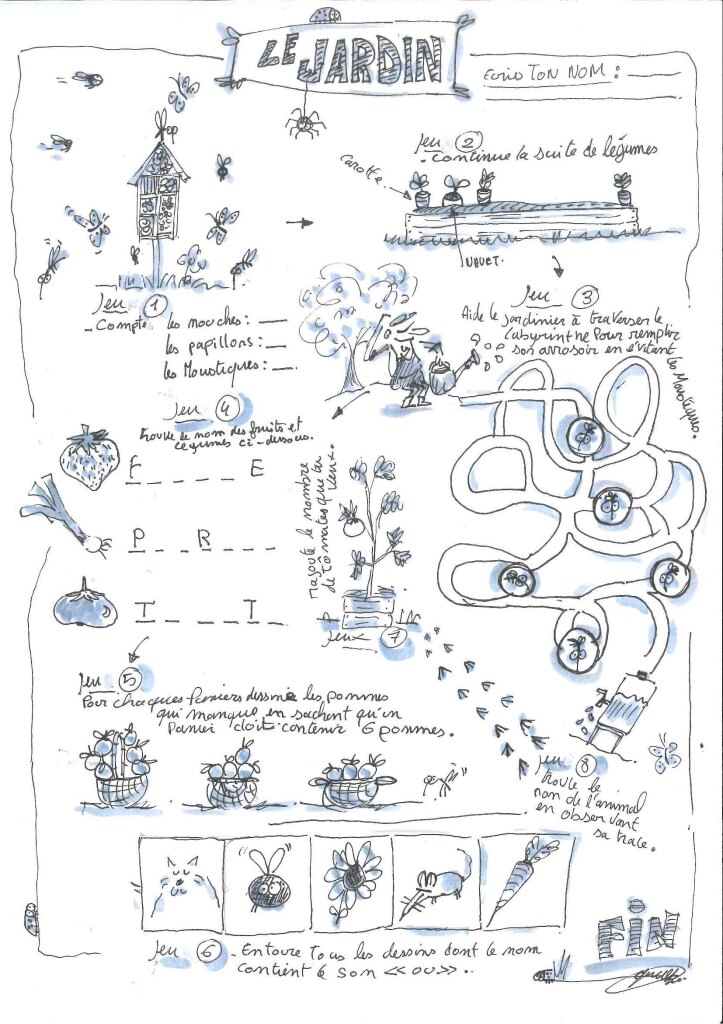 LE JARDIN
Ecris TON NOM :
Jeu 1
Compte les mouches :
les papillons :
les Moustiques :
Jeu 2
. Continue la suite de légumes
Carotte
NAVET.
Jeu 3
Aide le jardinier à traverser le
labyrinthe Pour remplir
son arrosoir en évitant
les Moustiques.
Jeu 4
trouve le nom des fruits et
légumes ci-dessous.
F _ _ _ _ E
P _ R _ _
T _ _ T _
Jeu 5
Pour chaques Paniers dessine les pommes
qui manque en sachent qu'un
Panier doit contenir 6 pommes.
Jeu 6 - Entoure Tous les dessins dont le nom
contient le son << ou >> ..
rajoute le nombre
de tomates que tu
veux.
Jeux 7
Jeu 8
trouve le
nom de l'animal
en observant
sa trace.
FIN